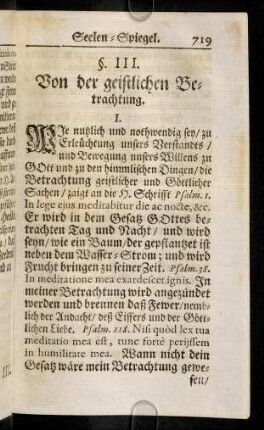 Seelen-Spiegel. 719
§. III.
Von der geistlichen Be-
trachtung.
I.
WJe nutzlich und nothwendig sey / zu
Erleüchtung unsers Verstandts /
und Bewegung unsers Willens zu
GOtt und zu den himmlischen Dingen / die
Betrachtung geistlicher und Göttlicher
Sachen / zeigt an die H. Schrifft Psalm. 1.
In lege ejus meditabitur die ac nocte, &c.
Er wird in dem Gesatz GOttes be-
trachten Tag und Nacht / und wird
seyn / wie ein Baum / der gepflantzet ist
neben dem Wasser-Strom; und wird
Frucht bringen zu seiner Zeit. Psalm. 38.
In meditatione mea exardescet ignis. In
meiner Betrachtung wird angezündet
werden und brennen daß Fewer / nemb-
lich der Andacht / deß Eiffers und der Gött-
lichen Liebe. Psalm. 118. Nisi quòd lex tua
meditatio mea est, tunc fortè perijssem
in humilitate mea. Wann nicht dein
Gesatz wäre mein Betrachtung gewe-
sen /